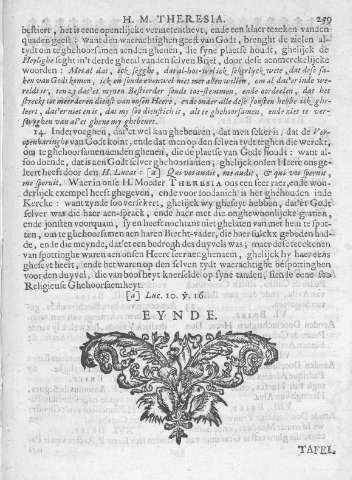 H. M. THERESIA. 259
bestiert, het is eene opentlijcke vermetentheyt, ende een klaer teecken vanden
quaden geest: want den waerachtighen geest van Godt, brenght de zielen al-
tydt om te ghehoorsamen aen den ghenen, die syne plaetse houdt, ghelijck de
Heylighe seght in't derde ghetal van den selven Brief, door dese aenmerckelijcke
woorden: Met al dat, ick segghe, dat al-hoe-wel ick sekerlijck wete, dat dese sa-
ken van Godt komen, ick en soude evenwel niet met allen willen, om al dat'er in de we-
reldt is, ten zy dat'et mynen Bestierder soude toe-stemmen, ende oordeelen, dat het
streckt tot meerderen dienst van onsen Heere, ende onder alle dese jonsten hebbe ick ghe-
leert, dat'er niet en is, dat my soo dienstich is, als te ghehoorsamen, ende niet te ver-
swyghen van al't ghene my ghebeurt.
14. Inder voeghen, dat'et wel kan ghebeuren, dat men seker is, dat de Ver-
openbaringe van Godt komt, ende dat men op den selven tydt seghe die werckt,
om te ghehoorsamen aen den ghenen, die de plaetse van Godt houdt: want al-
soo doende, dat is aen Godt selver ghehoorsamen, ghelijck onsen Heere ons ge-
leert heeft door den H. Lucas: [a] Qui vos audit, me audit, & qui vos spernit,
me spernit. Waer in onse H. Moeder THERESIA ons een seer raer, ende won-
derlijck exempel heeft ghegeven, ende voor soodanich is het ghehouden in de
Kercke: want zynde soo versekert, ghelijck wy gheseyt hebben, dat'et Godt
selver was die haer aen-sprack, ende haer met die onghewoonlijcke gratien,
ende jonsten voorquam, sy en heeft nochtans niet ghelaten van met hem te spot-
ten, om te ghehoorsamen aen haren Biecht-vader, die haer sulckx geboden had-
de, ende die meynde, dat'et een bedrogh des duyvels was; maer dese teeckenen
van spottinghe waren aen onsen Heere seer aenghenaem, ghelijck hy haer eens
gheseyt heeft, ende het waren op den selven tydt waerachtighe bespottinghen
voor den duyvel, die van boosheyt knerselde op syne tanden, siende eene soo
Religieuse Ghehoorsaemheyt.
[a] Luc. 10. ℣. 16.
EYNDE.
TAFEL